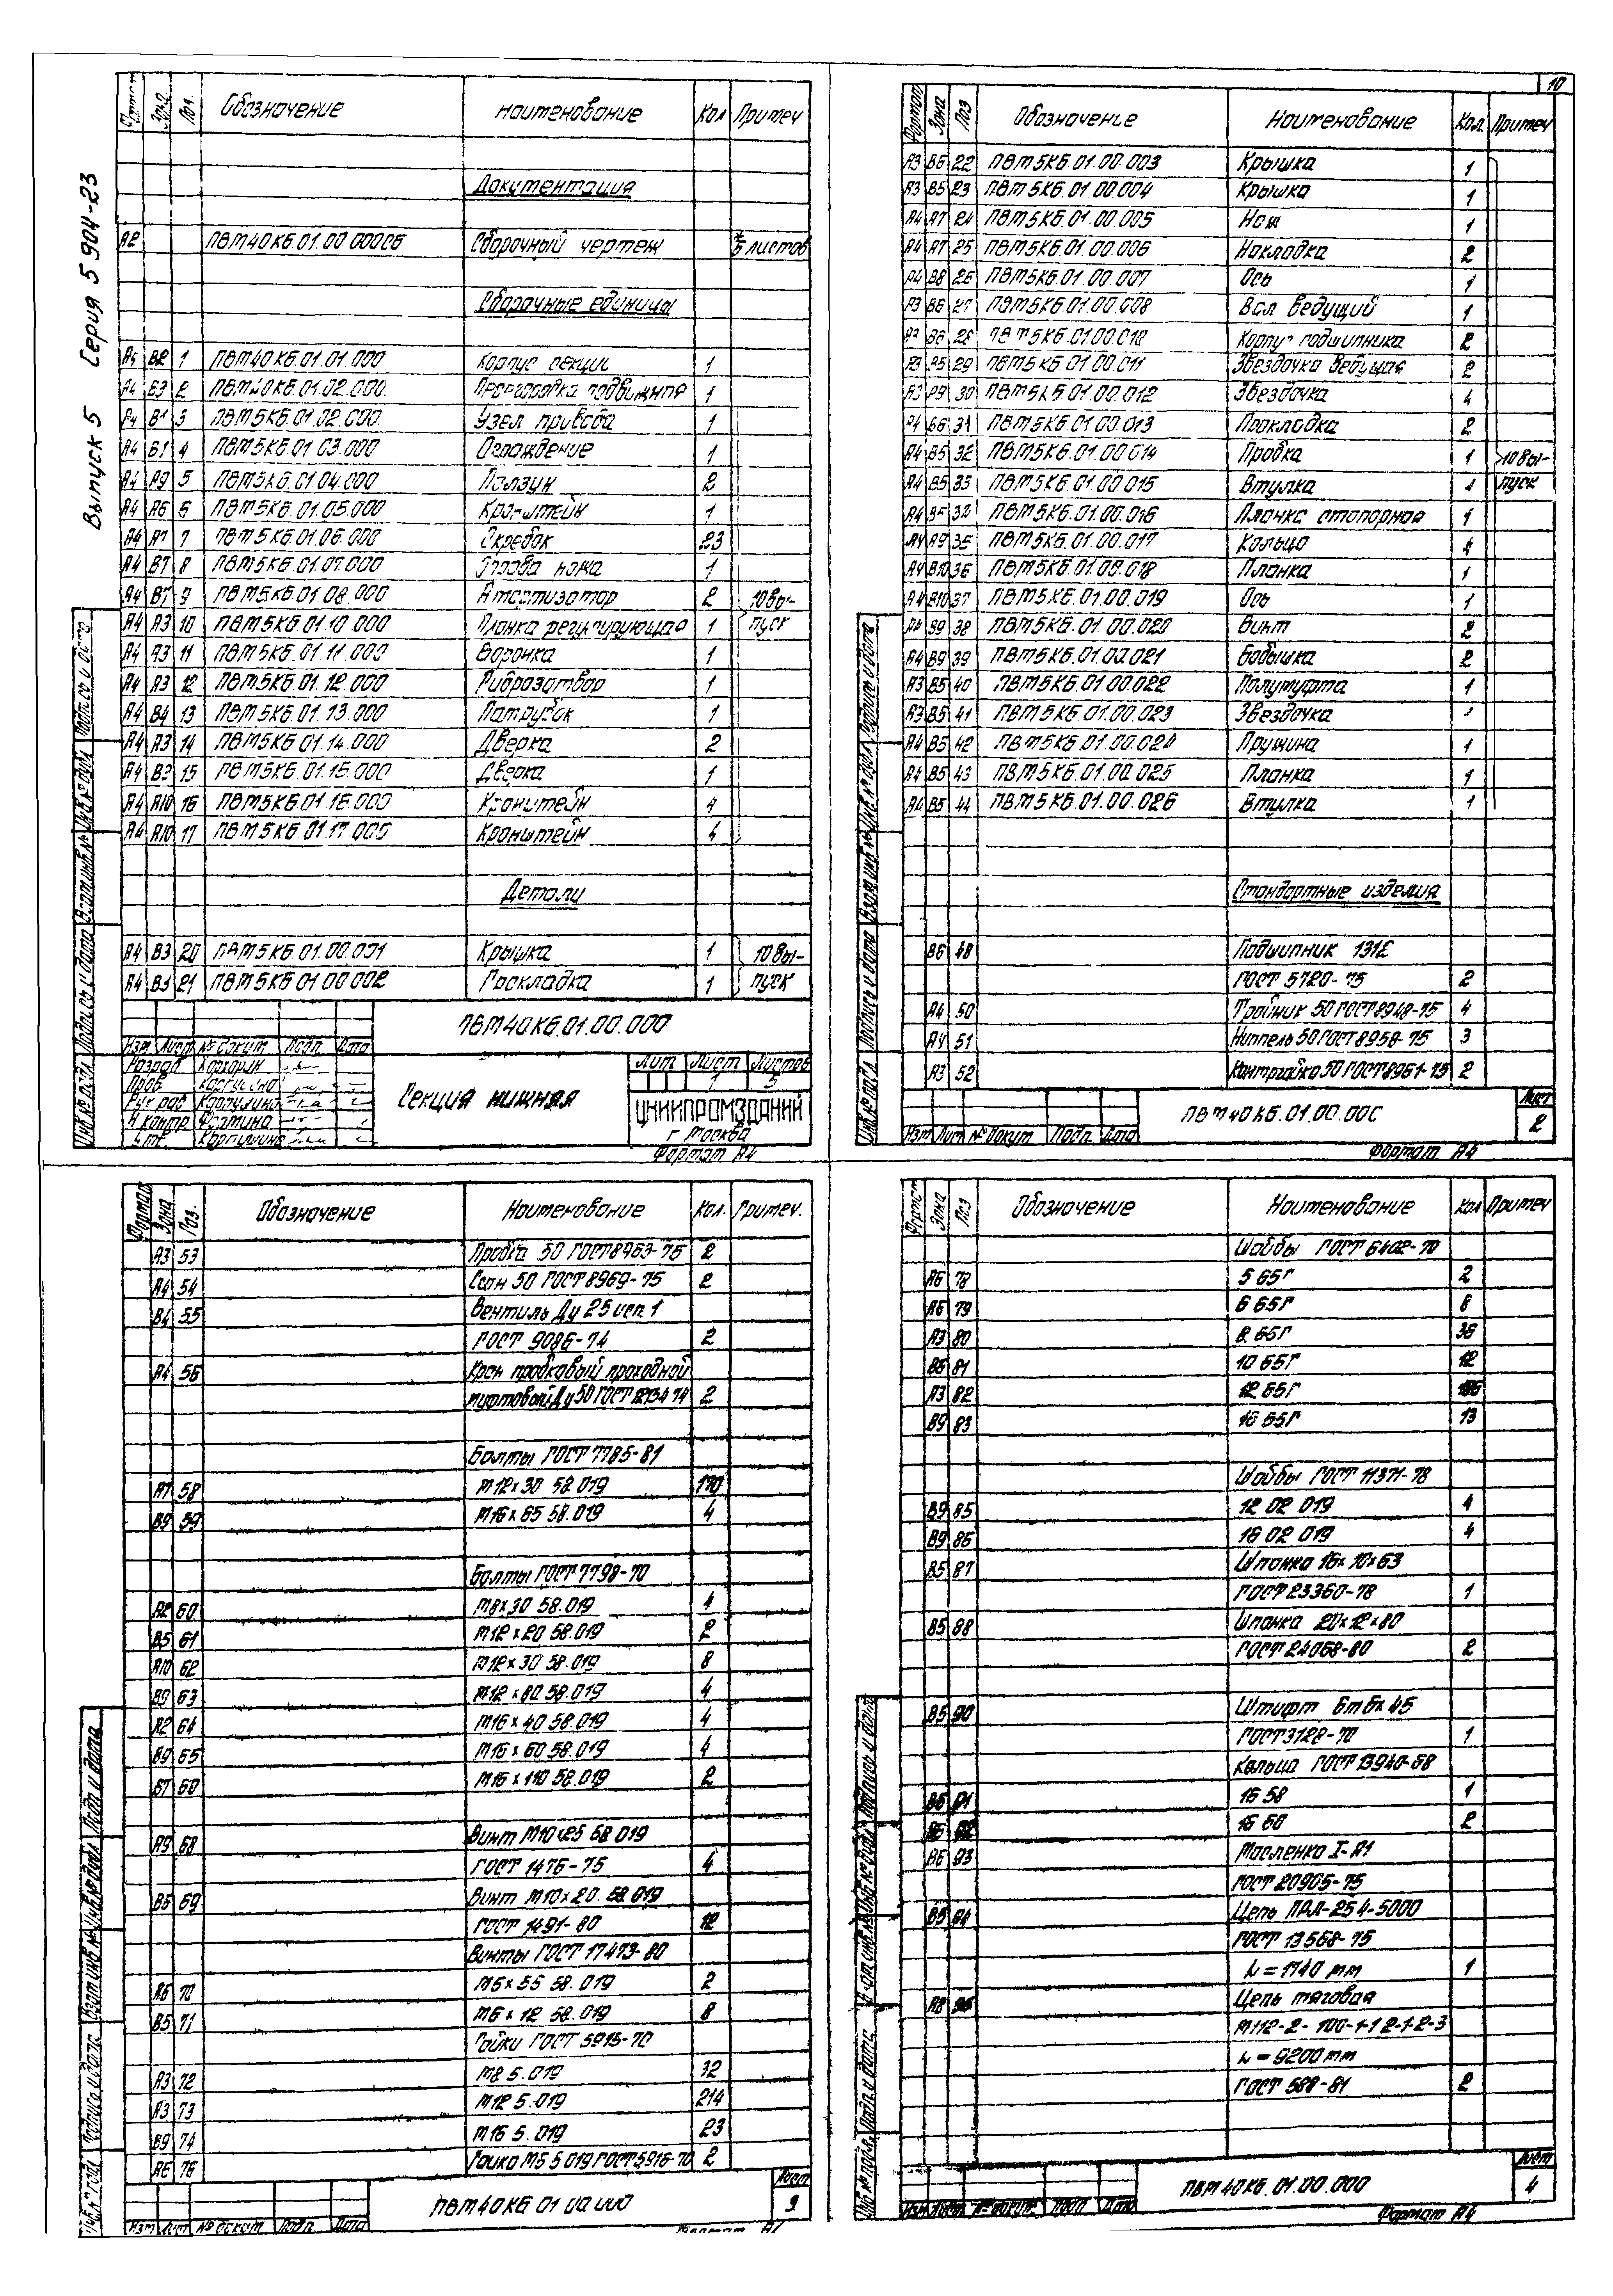 10
Выпуск 5 Серия 5 904-23
Зона Поз. Обозначение Наименование Кол Примеч
Документация
А2 ПВМ40КБ.01.00 000СБ Сборочный чертеж * 5 листов
Сборочные единицы
А4 В2 1 ПВМ40КБ.01.01.000 Корпус секции 1
А4 Б3 2 ПВМ40КБ.01.02.000. Перегородка подвижная 1
А4 В1 3 ПВМ5КБ.01.02.000. Узел привода 1
А4 Б1 4 ПВМ5КБ.01.03.000 Ограждение 1
А4 А9 5 ПВМ5КБ.01.04.000 Ползун 2
А4 А6 6 ПВМ5КБ.01.05.000 Кронштейн 1
А4 А7 7 ПВМ5КБ.01.06.000 Скребок 23
А4 В7 8 ПВМ5КБ.01.07.000 ножа 1
А4 В7 9 ПВМ5КБ.01.08.000 Амортизатор 2 10 вы-
А4 А3 10 ПВМ5КБ.01.10.000 Планка регулирующая 1 пуск
А4 А3 11 ПВМ5КБ.01.11.000 Воронка 1
А4 А3 12 ПВМ5КБ.01.12.000 Гидрозатвор 1
А4 В4 13 ПВМ5КБ.01.13.000 Патрубок 1
А4 А3 14 ПВМ5КБ 01.14.000 Дверка 2
А4 В2 15 ПВМ5КБ.01.15.000 Дверка 1
А4 А10 16 ПВМ5КБ.01.16.000 Кронштейн 4
А4 А10 17 ПВМ5КБ.01.17.000 Кронштейн 4
Детали
А4 В3 20 ПВМ5КБ.01.00.001 Крышка 1 10 вы-
А4 В3 21 ПВМ5КБ.01 00 002 Прокладка 1 пуск
ПВМ40КБ.01.00.000
Изм Лист № докум Подп. Дата
Разраб Каргарин
Пров
Рук раб
Н контр Фомина
Утв.
Секция нижняя
Лит Лист Листов
1 5
ЦНИИПРОМЗДАНИЙ
г Москва
Формат А4
Формат Зона Поз Обозначение Наименование Кол. Примеч
А3 В6 22 ПВМ5КБ.01.00.003 Крышка 1
А3 В5 23 ПВМ5КБ.01 00.004 Крышка 1
А4 А7 24 ПВМ5КБ.01.00.005 Нож 1
А4 А7 25 ПВМ5КБ.01.00.006 Накладка 2
А4 В8 26 ПВМ5КБ.01.00.007 Ось 1
А3 В6 27 ПВМ5КБ.01.00.008 Вал ведущий 1
А3 В6 28 ПВМ5КБ.01.00.010 Корпус подшипника 2
А3 В5 29 ПВМ5КБ.01.00.011 Звездочка ведущая 2
А3 А9 30 ПВМ5КБ.01.00.012 Звездочка 4
А4 В6 31 ПВМ5КБ.01.00.013 Прокладка 2
А4 В5 32 ПВМ5КБ.01.00.014 Пробка 1 10 вы-
А4 В5 33 ПВМ5КБ.01.00.015 Втулка 1 пуск
А4 34 ПВМ5КБ.01.00.016 Планка стопорная 1
А4 А9 35 ПВМ5КБ.01.00.017 Кольцо 4
А4 В10 36 ПВМ5КБ.01.00.018 Планка 1
А4 В10 37 ПВМ5КБ.01.00.019 Ось 1
А4 В9 38 ПВМ5КБ.01.00.020 Винт 2
А4 В9 39 ПВМ5КБ.01.00.021 Бобышка 2
А3 В5 40 ПВМ5КБ.01.00.022 Полумуфта 1
А3 В5 41 ПВМ5КБ.01.00.023 Звездочка
А4 В5 42 ПВМ5КБ.01.00.024 Пружина 1
А4 В5 43 ПВМ5КБ.01.00.025 Планка 1
А4 В5 44 ПВМ5КБ.01.00.026 Втулка 1
Стандартные изделия
В6 48 Подшипник 1312
ГОСТ 5720-75 2
А4 50 Тройник 50 ГОСТ8948-75 4
А4 51 Ниппель 50 ГОСТ8958-75 3
А3 52 Контргайка 50 ГОСТ8961-75 2
Изм Лист № докум Подп. Дата ПВМ40КБ.01.00.000 Лист 2
Формат А4
Формат Зона Поз. Обозначение Наименование Кол. Примеч.
А3 53 Пробка 50 ГОСТ8963-75 2
А4 54 Сгон 50 ГОСТ 8969-75 2
В4 55 Вентиль Ду 25 исп. 1
ГОСТ 9086-74 2
А4 56 Кран пробковый проходной
муфтовый Ду 50 ГОСТ 2
Болты ГОСТ 7785-81
А7 58 М12×30 58.019 190
В9 59 М16×65 58.019 4
Болты ГОСТ 7798-70
А2 60 М8×30 58.019 4
В5 61 М12×20 58.019 2
А10 62 М12×30 58.019 8
В9 63 М12×80 58.019 4
А2 64 М16×40 58.019 4
В9 65 М16×60 58.019 4
В7 66 М16×110 58.019 2
А9 68 Винт М10×25 58 019
ГОСТ 1476-75 4
В6 69 Винт М10×20. 58.019
ГОСТ 1491-80 12
Винты ГОСТ 17473-80
А6 70 М5×55 58.019 2
В5 71 М6×12 58.019 8
Гайки ГОСТ 5915-70
А3 72 М8 5.019 32
А3 73 М12 5.019 214
В9 74 М16 5.019 23
А6 76 Гайка М5 5 019 ГОСТ5916-70 2
Изм Лист № докум Подп. Дата ПВМ40КБ 01 00 000 Лист 3
Формат Зона Поз Обозначение Наименование Кол Примеч
Шайбы ГОСТ 6402-70
А6 78 5 65Г 2
А6 79 6 65Г 8
А3 80 8. 65Г 36
В6 81 10 65Г 12
А3 82 12 65Г
В9 83 16 65Г 13
Шайбы ГОСТ 11371-78
В9 85 12 02 019 4
В9 86 16 02 019 4
В5 87 Шпонка 16×10×63
ГОСТ 23360-78 1
В5 88 Шпонка 20×12×80
ГОСТ 24068-80 2
В5 90 Штифт 6m6×45
ГОСТ3128-70 1
Кольца ГОСТ 13940-68
В6 91 1Б 58 1
В6 92 1Б 60 2
В6 93 Масленка I-А1
ГОСТ 20905-75
В5 94 Цепь ПРЛ-25 4-5000
ГОСТ 13568-75
L=1740 мм 1
А8 96 Цепь тяговая
М112-2-100-1-1 2-1-2-3
L=9200 мм
ГОСТ 588-81 2
Изм Лист № докум. Подп Дата ПВМ40КБ.01.00.000 Лист 4
Формат А4